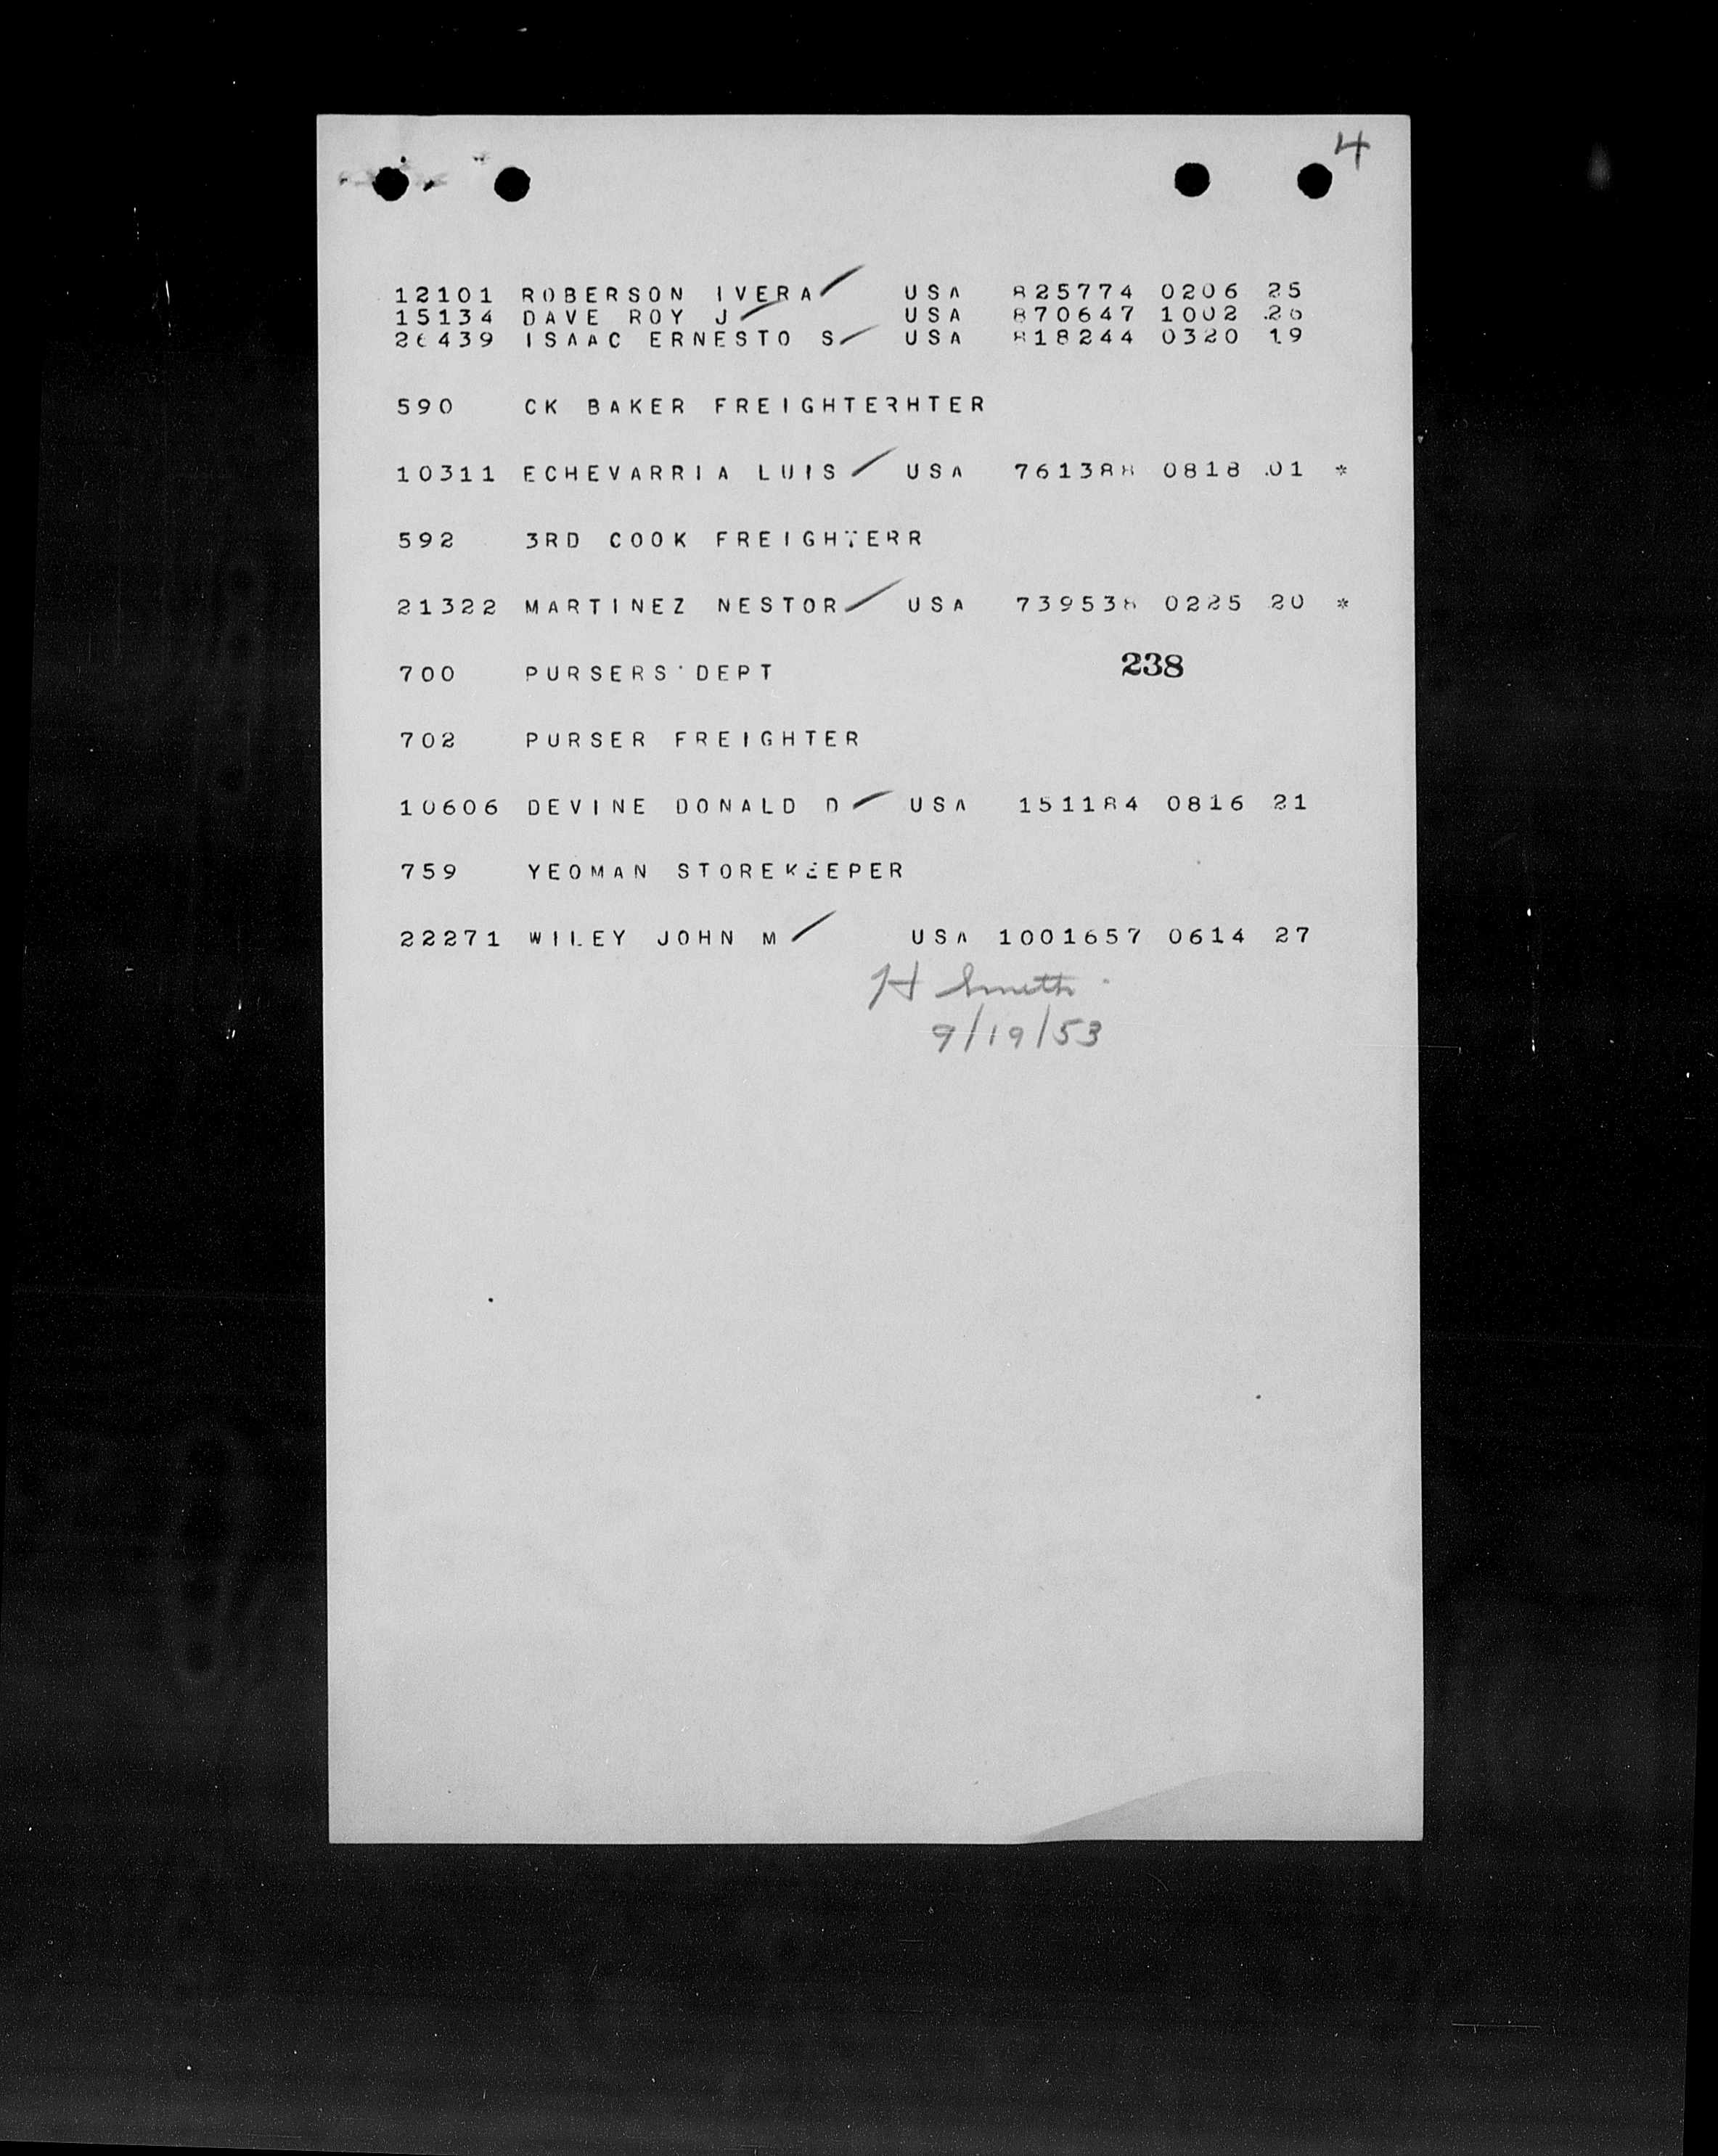 4
12101 ROBERSON IVERA USA 825774 0206 25
15134 DAVE ROY J USA 870647 1002 26
26439 ISAAC ERNESTO S USA 818244 0320 19
590 CK BAKER FREIGHTERHTER
10311 ECHEVARRIA LUIS USA 761388 0818 01 *
592 3RD COOK FREIGHTERR
21322 MARTINEZ NESTOR USA 739538 0225 20 *
700 PURSERS DEPT 238
702 PURSER FREIGHTER
10606 DEVINE DONALD D USA 151184 0816 21
759 YEOMAN STOREKEEPER
22271 WILEY JOHN M USA 1001657 0614 27
H Smith
9/19/53